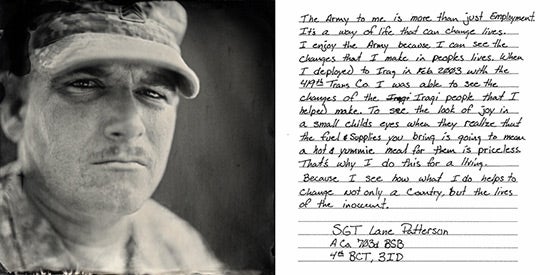 The Army to me is more than just Employment.
It's a way of life that can change lives.
I enjoy the Army because I can see the
changes that I make in peoples lives. When
I deployed to Iraq in Feb 2003 with the
419th Trans Co I was able to see the
changes of the Iraqi Iraqi people that I
helped make. To see the look of joy in
a small childs eyes when they realize that
the fuel & Supplies you bring is going to mean
a hot & yummie meal for them is priceless.
That's why I do this for a living.
Because I see how what I do helps to
Change not only a Country, but the lives
of the innocent.
SGT Lane Patterson
A Co 703d BSB
4th BCT, 3ID